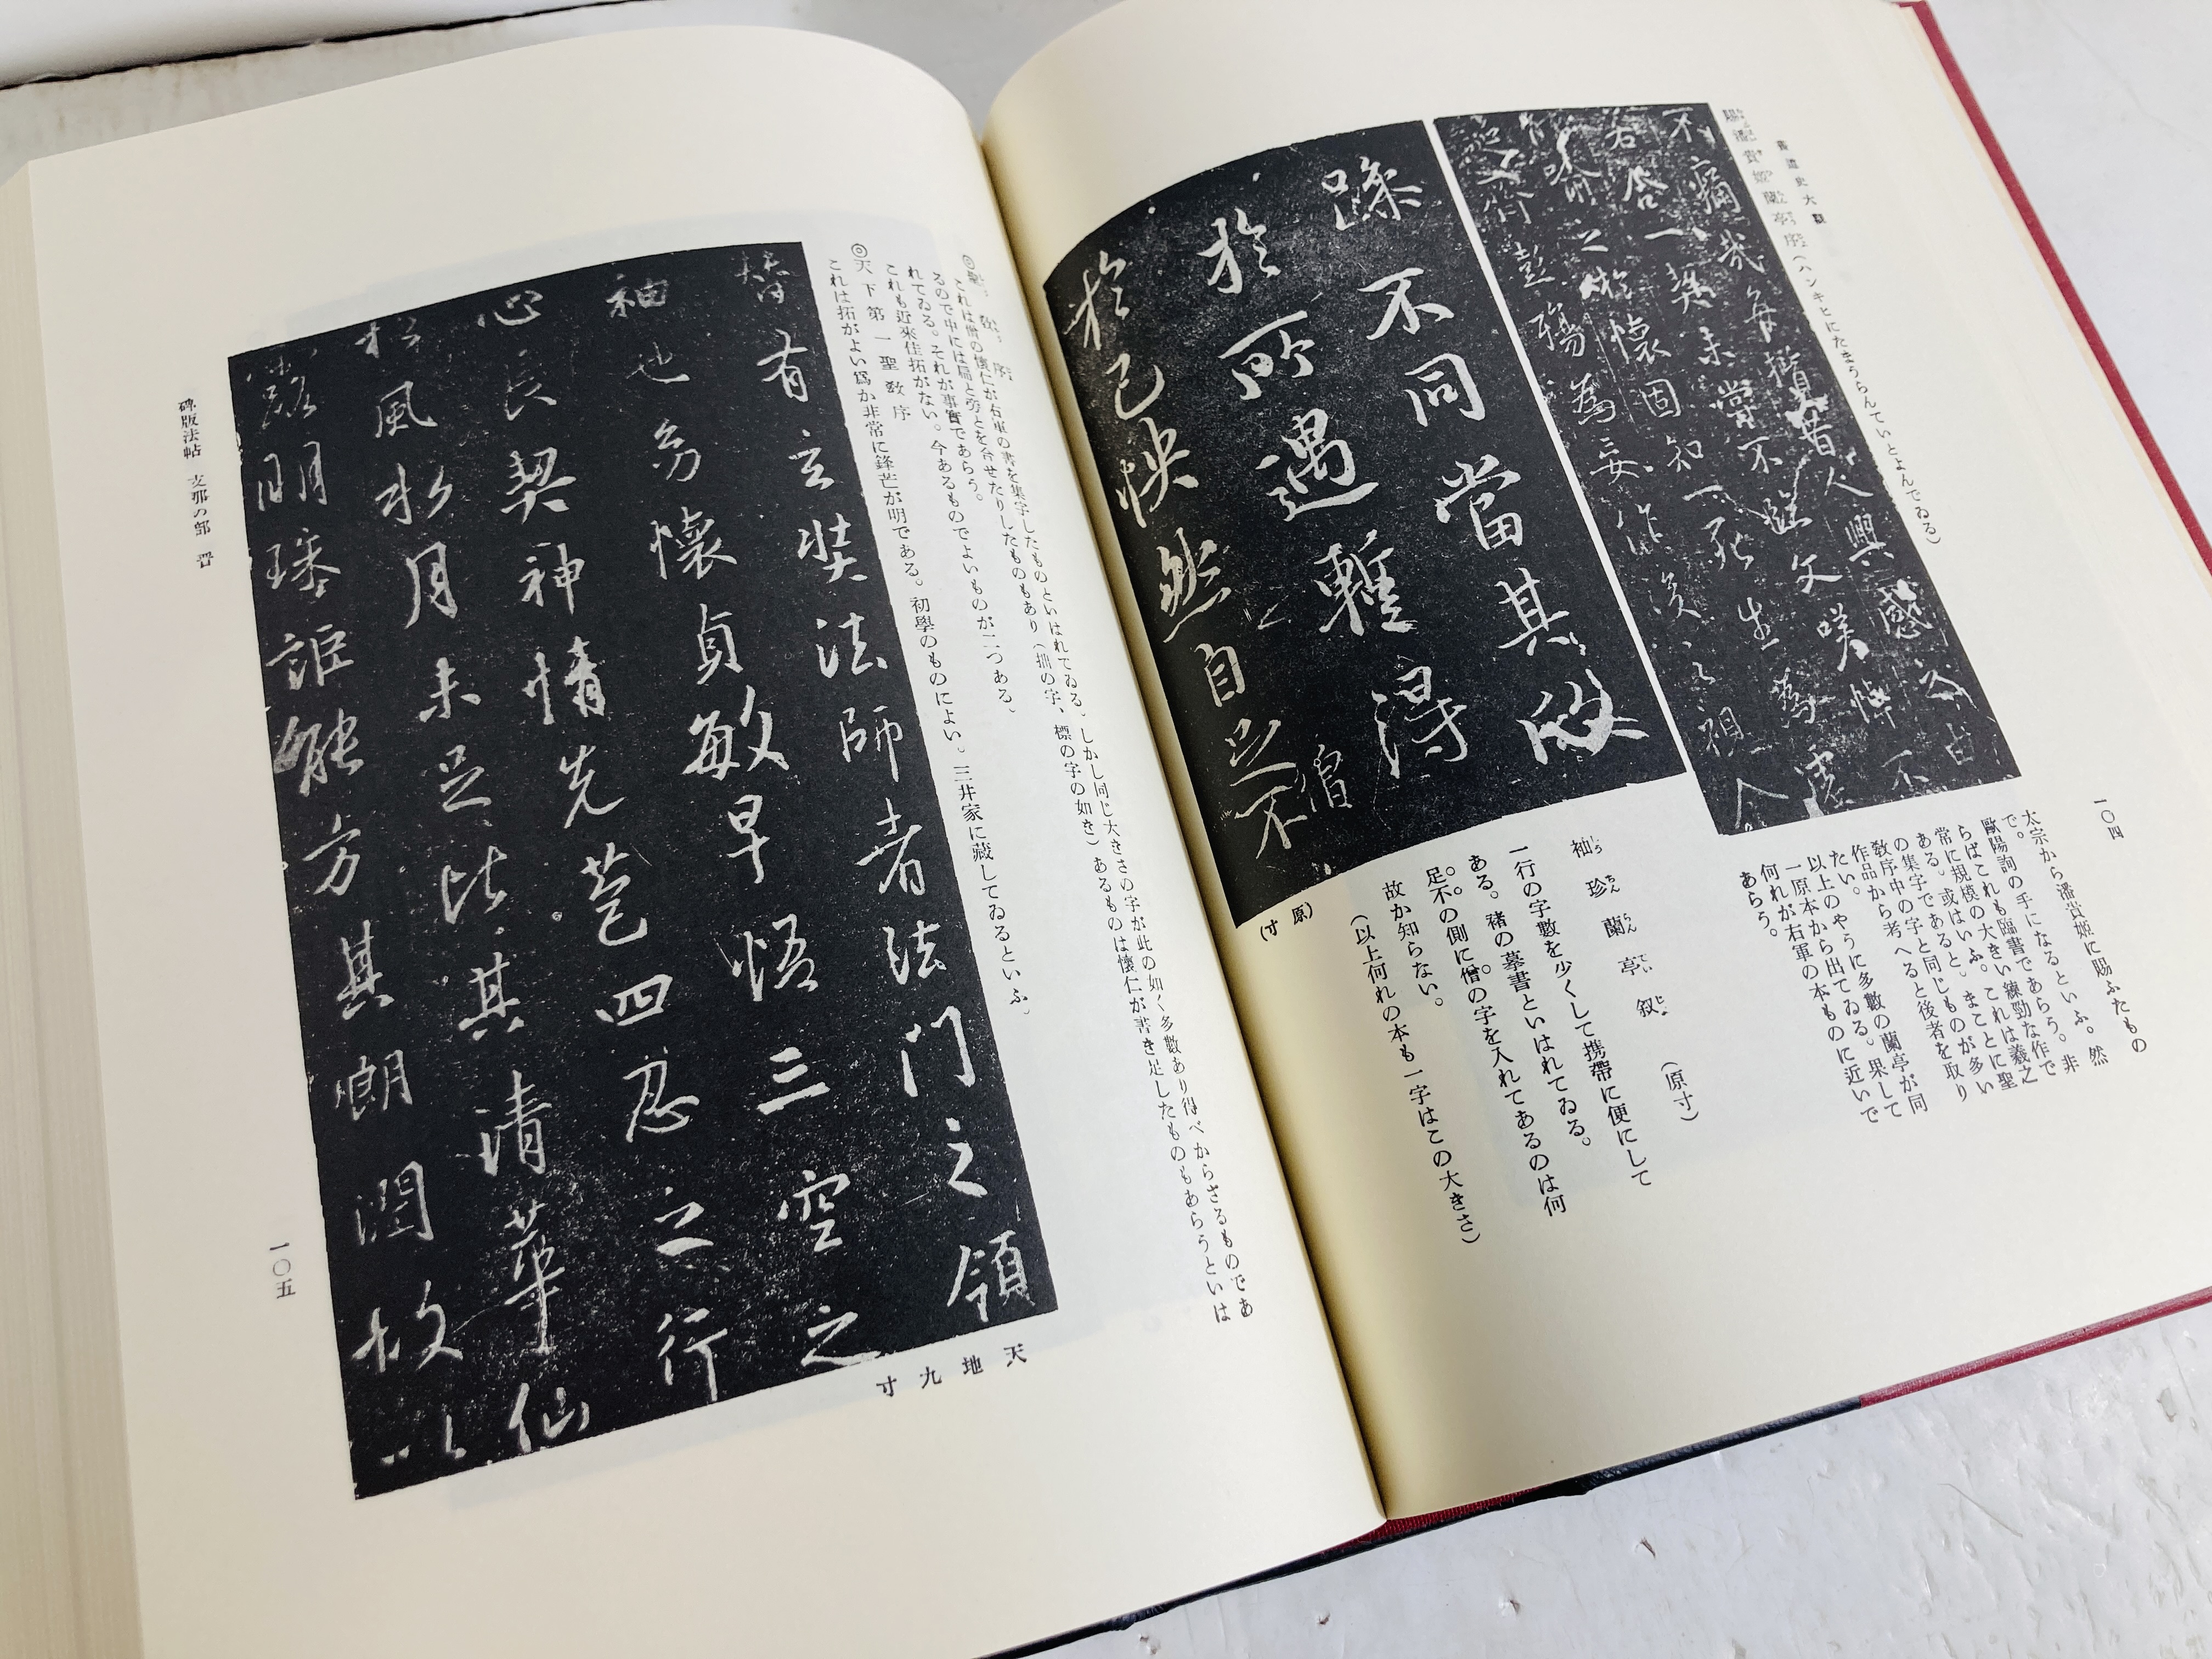 書道史大観
賜潘貴妃蘭亭序(ハンキヒにたまうらんていとよんでゐる)
不痛哉每攬昔人興感之由
若合一契未嘗不臨文嗟悼不
喻之於懷固知一死生為虛
彭殤為妄作後
一〇四
太宗から潘貴姬に賜ふたもの
で。歐陽詢の手になるといふ。然
らばこれも臨書であらう。非
常に規模の大きい練勁な作で
ある。或はいふ。これは羲之
の集字であると。まことに聖
敎序中の字と同じものが多い
作品から考へると後者を取り
たい。
以上のやうに多數の蘭亭が同
一原本から出てゐる。果して
何れが右軍の本ものに近いで
あらう。
躁不同當其欣
於所遇暫得
於己怏然自足不
僧
(原寸)
袖珍蘭亭叙 (原寸)
しうちんらんてい
一行の字數を少くして携帶に便にして
ある。褚の墓書といはれてゐる。
足不の側に僧の字を入れてあるのは何
故か知らない。
(以上何れの本も一字はこの大きさ)
これは僧の懷仁が右軍の書を集字したものといはれてゐる。しかし同じ大きさの字が此の如く多數あり得べからざるものであ
るので中には扁と旁とを合せたりしたものもあり(拙の字、標の字の如き)あるものは懷仁が書き足したものもあらうといは
れてゐる。それが事實であらう。
これも近來佳拓がない。今あるものでよいものが二つある。
◎天下第一聖敎序
これは拓がよい爲か非常に鋒芒が明である。初學のものによい。三井家に藏してゐるといふ。
有玄奘法師者法門之領
袖也幼懷貞敏早悟三空之
心長契神情先苞四忍之行
松風水月未足比其清華仙
露明珠詎能方其朗潤故以
天地九寸
碑版法帖 支那の部 晉
一〇五